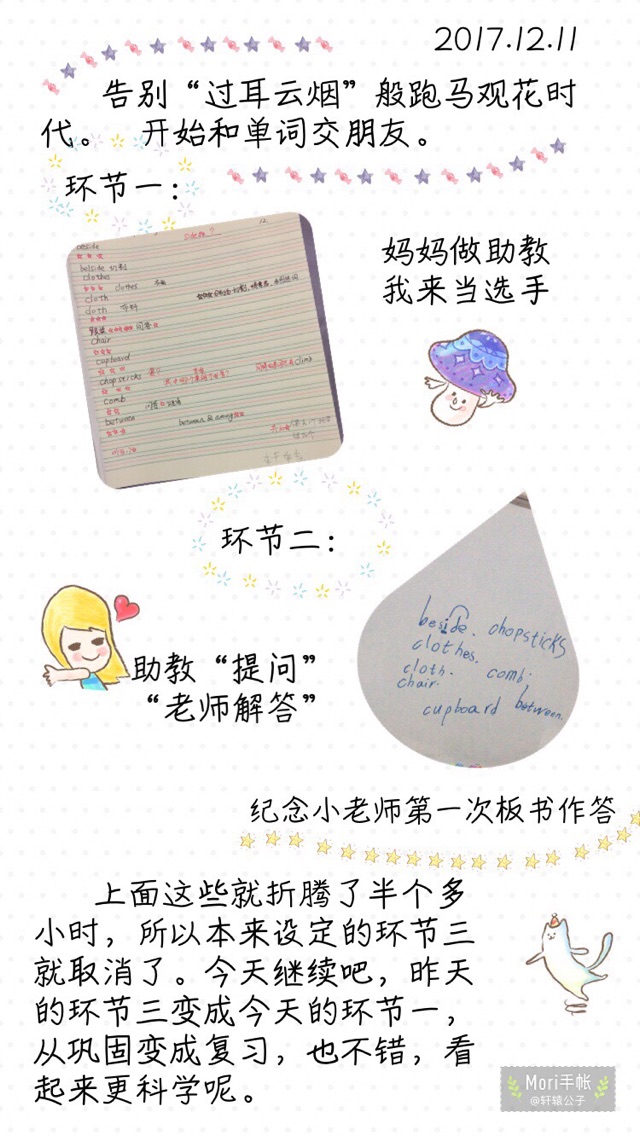 2017.12.11
告别“过耳云烟”般跑马观花时
代。 开始和单词交朋友。
环节一：
妈妈做助教
我来当选手
beside
clothes
clothes
cloth
cloth
chair
cupboard
chopsticks
climb
comb
between
between & among
环节二：
beside. chopsticks
clothes.
cloth. comb.
chair.
cupboard between.
助教“提问”
“老师解答”
纪念小老师第一次板书作答
上面这些就折腾了半个多
小时，所以本来设定的环节三
就取消了。今天继续吧，昨天
的环节三变成今天的环节一，
从巩固变成复习，也不错，看
起来更科学呢。
Mori手帐
@轩辕公子